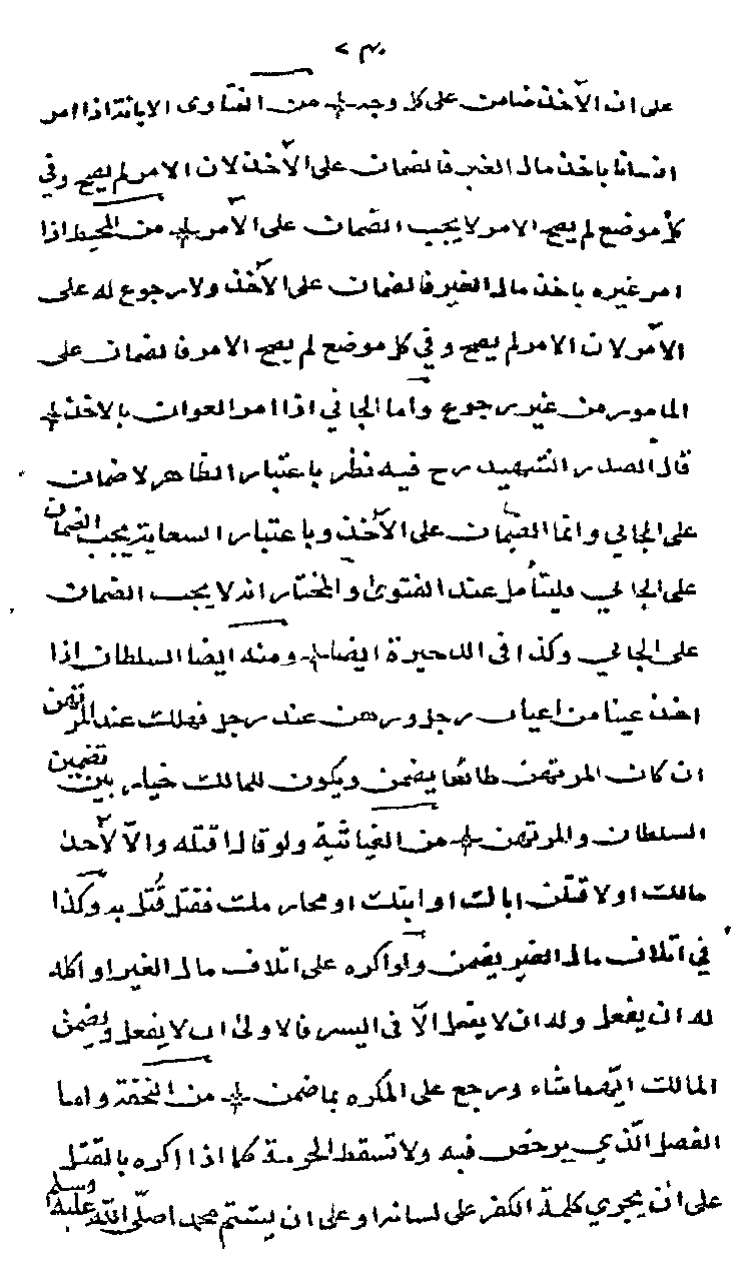 على ان الآخذ ضامن على كل وجه من الفتاوى الا بانة اذا امر
انسانا باخذ مال الغير فالضمان على الآخذ لان الامر لم يصح وفي
كل موضع لم يصح الامر لا يجب الضمان على الآمر من المحيط اذا
امر غيره باخذ مال الغير فالضمان على الآخذ ولا رجوع له على
الآمر لان الامر لم يصح وفي كل موضع لم يصح الامر فالضمان على
المامور من غير رجوع واما الجاني اذا امر العوان بالاخذ
قال الصدر الشهيد رح فيه نظر باعتبار الظاهر لا ضمان
على الجاني وانما الضمان على الآخذ وباعتبار السعاية يجب الضمان
على الجاني فليتأمل عند الفتوى والمختار انه لا يجب الضمان
على الجاني وكذا في الذخيرة ايضا ومنه ايضا السلطان اذا
اخذ عينا من اعيان رجل ورهن عند رجل فهلك عند المرتهن
ان كان المرتهن طائعا يضمن ويكون للمالك خيار بين تضمين
السلطان والمرتهن من الغياثية ولو قال اقتله والا لآخذن
مالك او لاقتلن اباك او ابنك او محارمك فقتل قُتل به وكذا
في اتلاف مال الغير يضمن ولو اكره على اتلاف مال الغير او اكله
له ان يفعل وله ان لا يفعل الّا في اليسر فالاولى ان لا يفعل ويضمن
المالك ايّهما شاء ورجع على المكره بما ضمن من التحفة واما
الفصل الّذي يرخص فيه ولا تسقط الحرمة كما اذا اكره بالقتل
على ان يجري كلمة الكفر على لسانه او على ان يشتم محمدا صلّى اللّه عليه وسلم